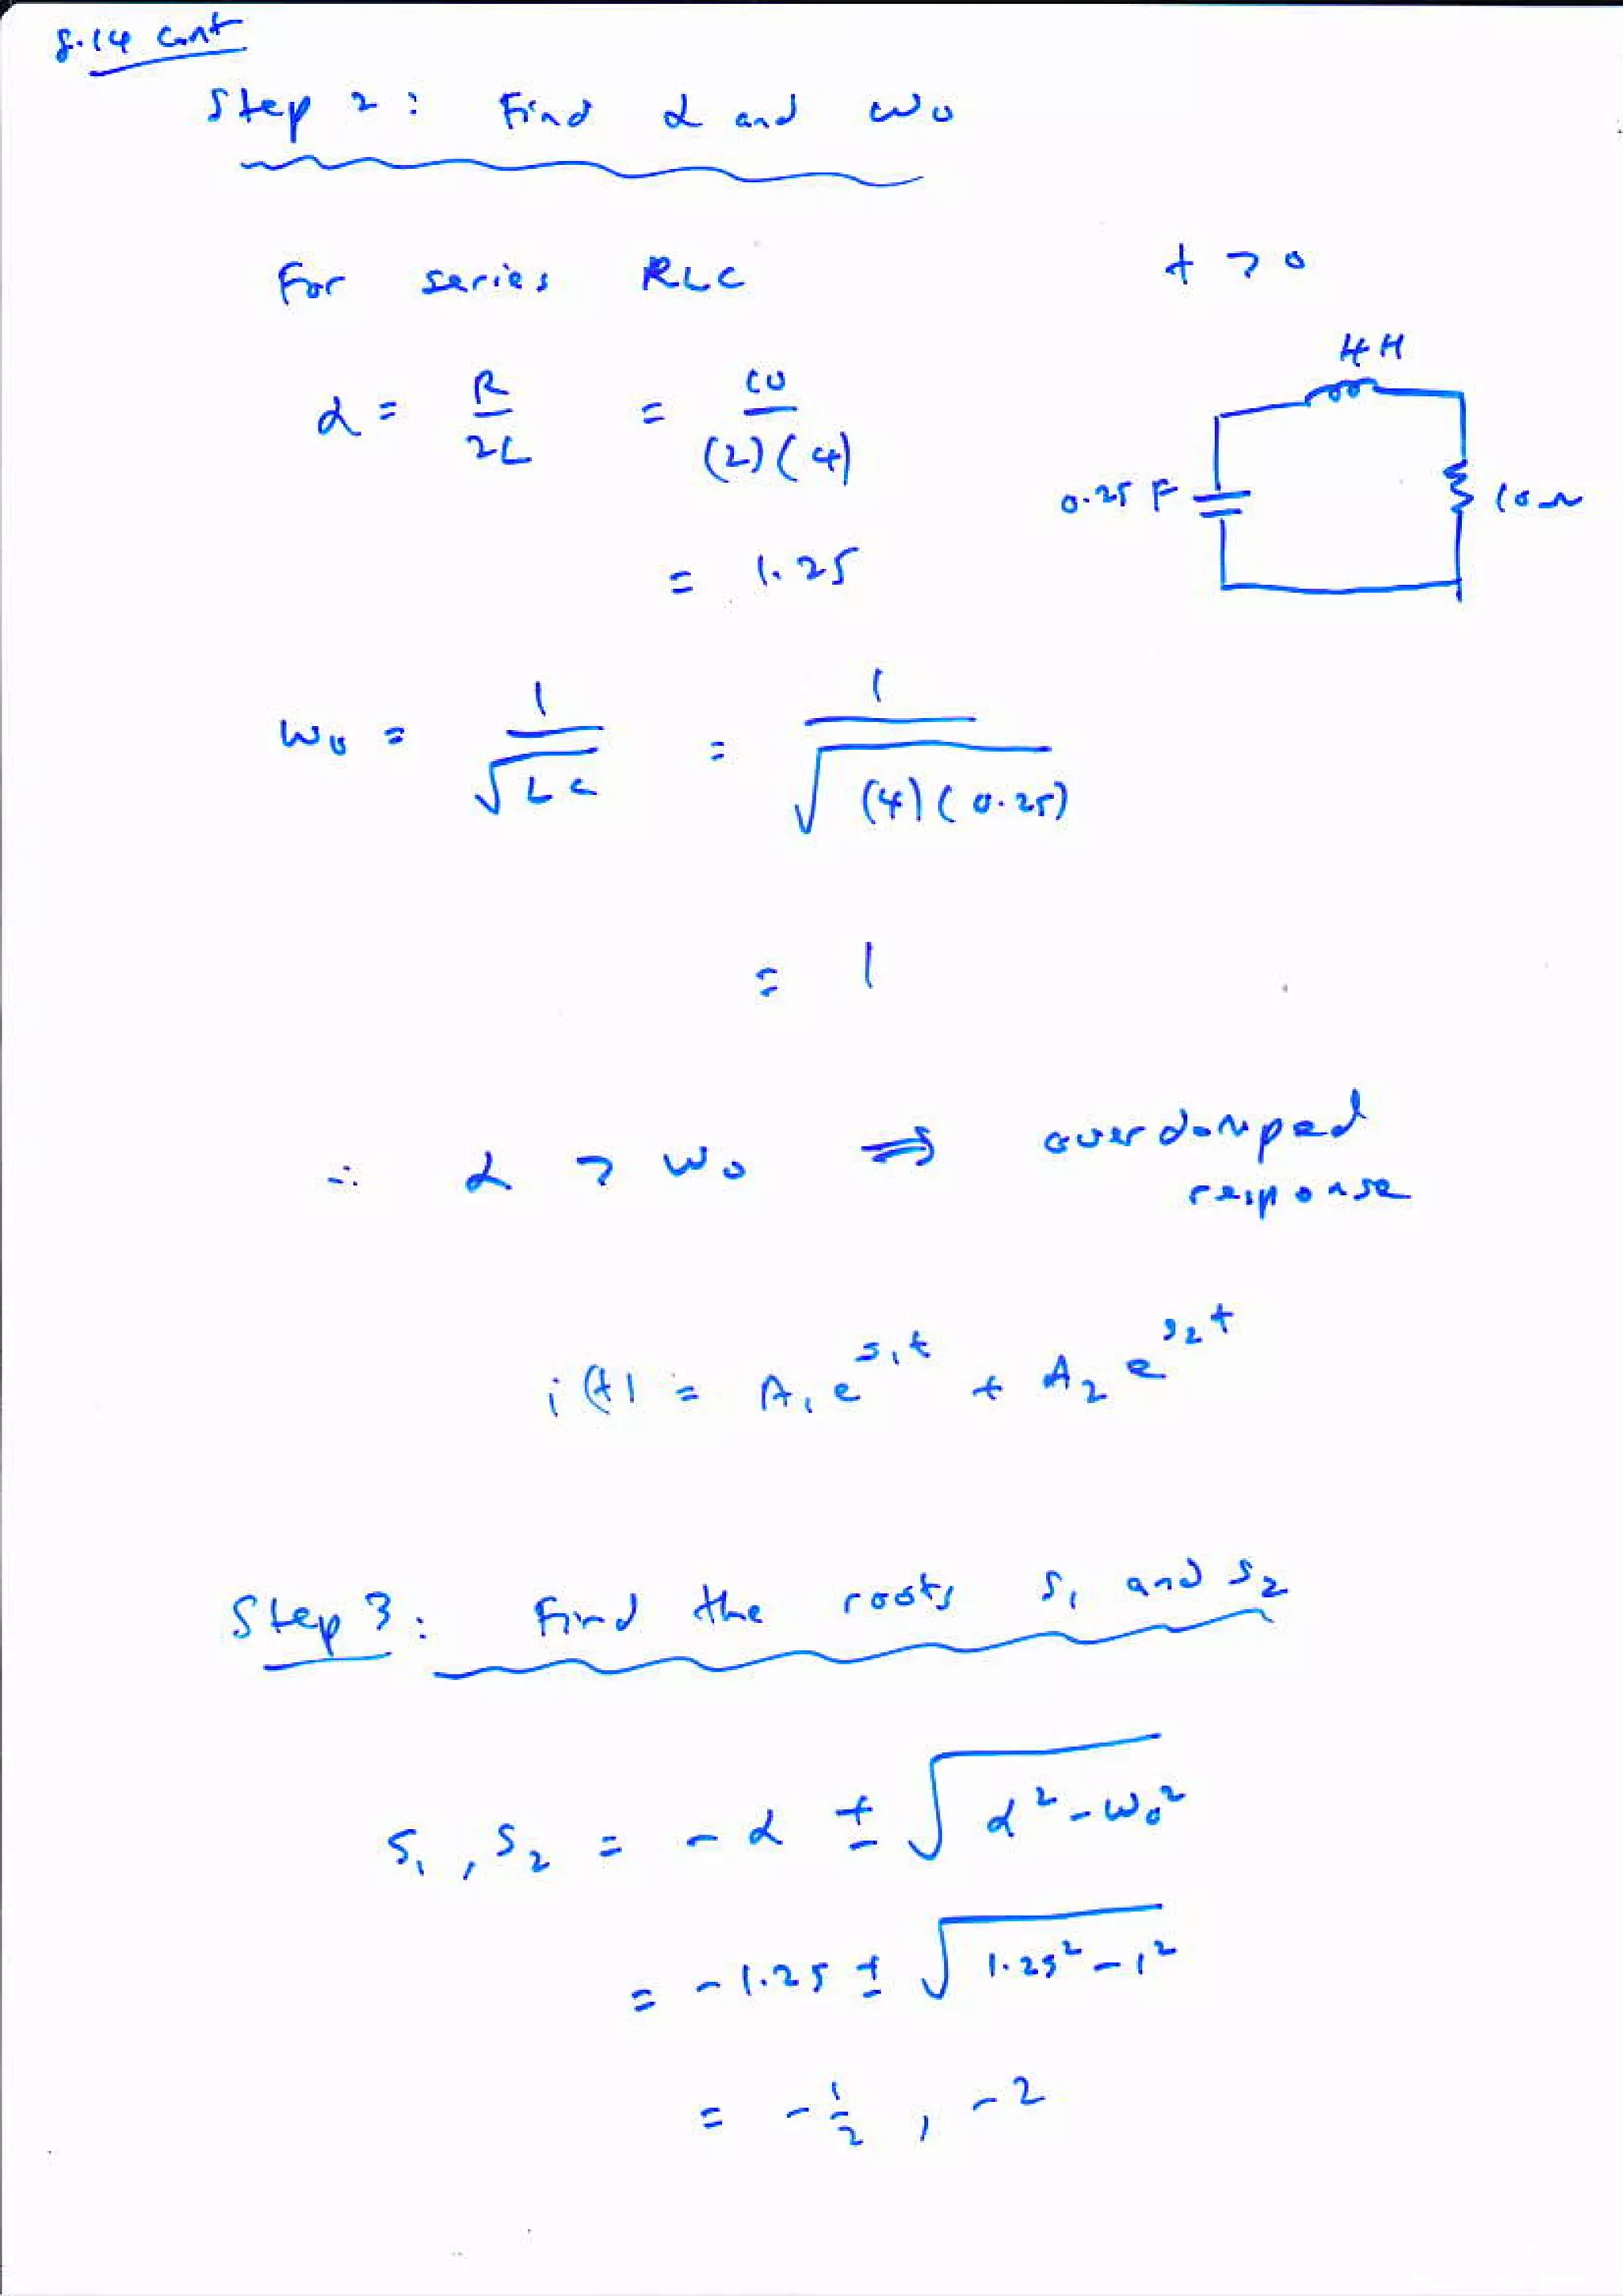 8.14 cont
Step 2: Find α and ω₀
For series RLC
t > 0
α = R/2L = 10/(2)(4)
4H
0.25 F
10 Ω
= 1.25
ω₀ = 1/√LC = 1/√(4)(0.25)
= 1
∴ α > ω₀ ⇒ overdamped
response
i(t) = A₁e^s₁t + A₂e^s₂t
Step 3: Find the roots s₁ and s₂
s₁, s₂ = -α ± √α² - ω₀²
= -1.25 ± √1.25² - 1²
= -1/2, -2